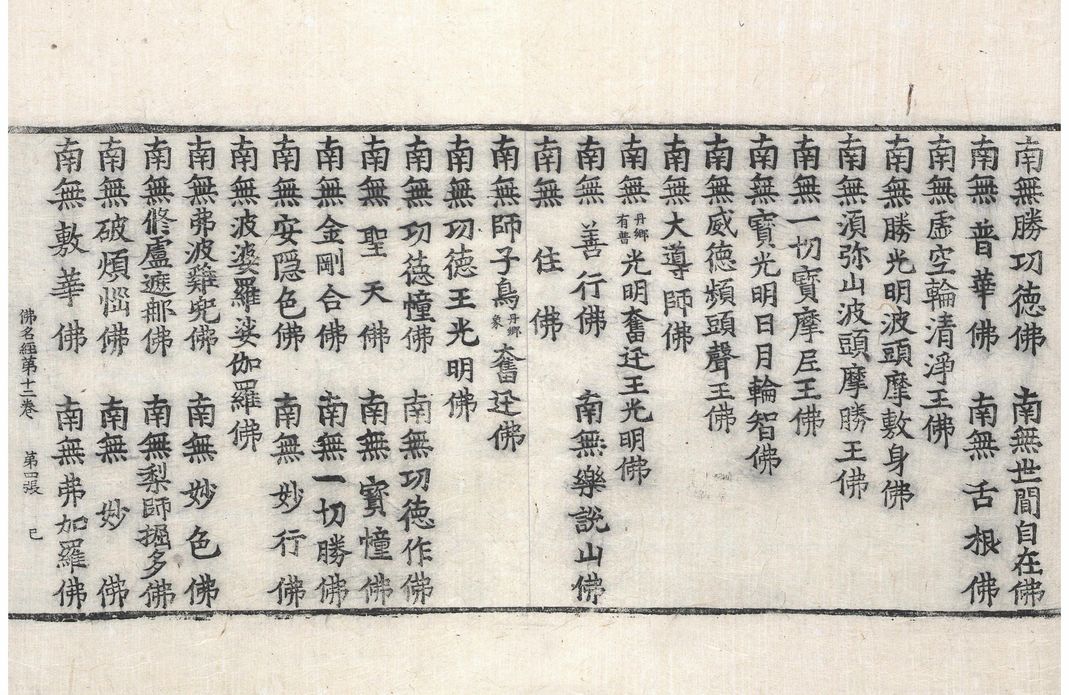 南無勝功德佛 南無世間自在佛
南無普華佛 南無舌根佛
南無虛空輪清淨王佛
南無勝光明波頭摩敷身佛
南無湏弥山波頭摩勝王佛
南無一切寶摩尼王佛
南無寶光明日月輪智佛
南無威德頻頭聲王佛
南無大導師佛
南無丹鄉有普光明奮迅王光明佛
南無善行佛 南無樂說山佛
南無住佛
南無師子鳥丹鄉象奮迅佛
南無功德王光明佛
南無功德幢佛 南無功德作佛
南無聖天佛 南無寶幢佛
南無金剛合佛 南無一切勝佛
南無安隱色佛 南無妙行佛
南無波婆羅娑伽羅佛
南無弗波雞兜佛 南無妙色佛
南無修盧遮那佛 南無梨師掘多佛
南無破煩惱佛 南無妙佛
南無敷華佛 南無弗加羅佛
佛名經第十二卷 第四張 已